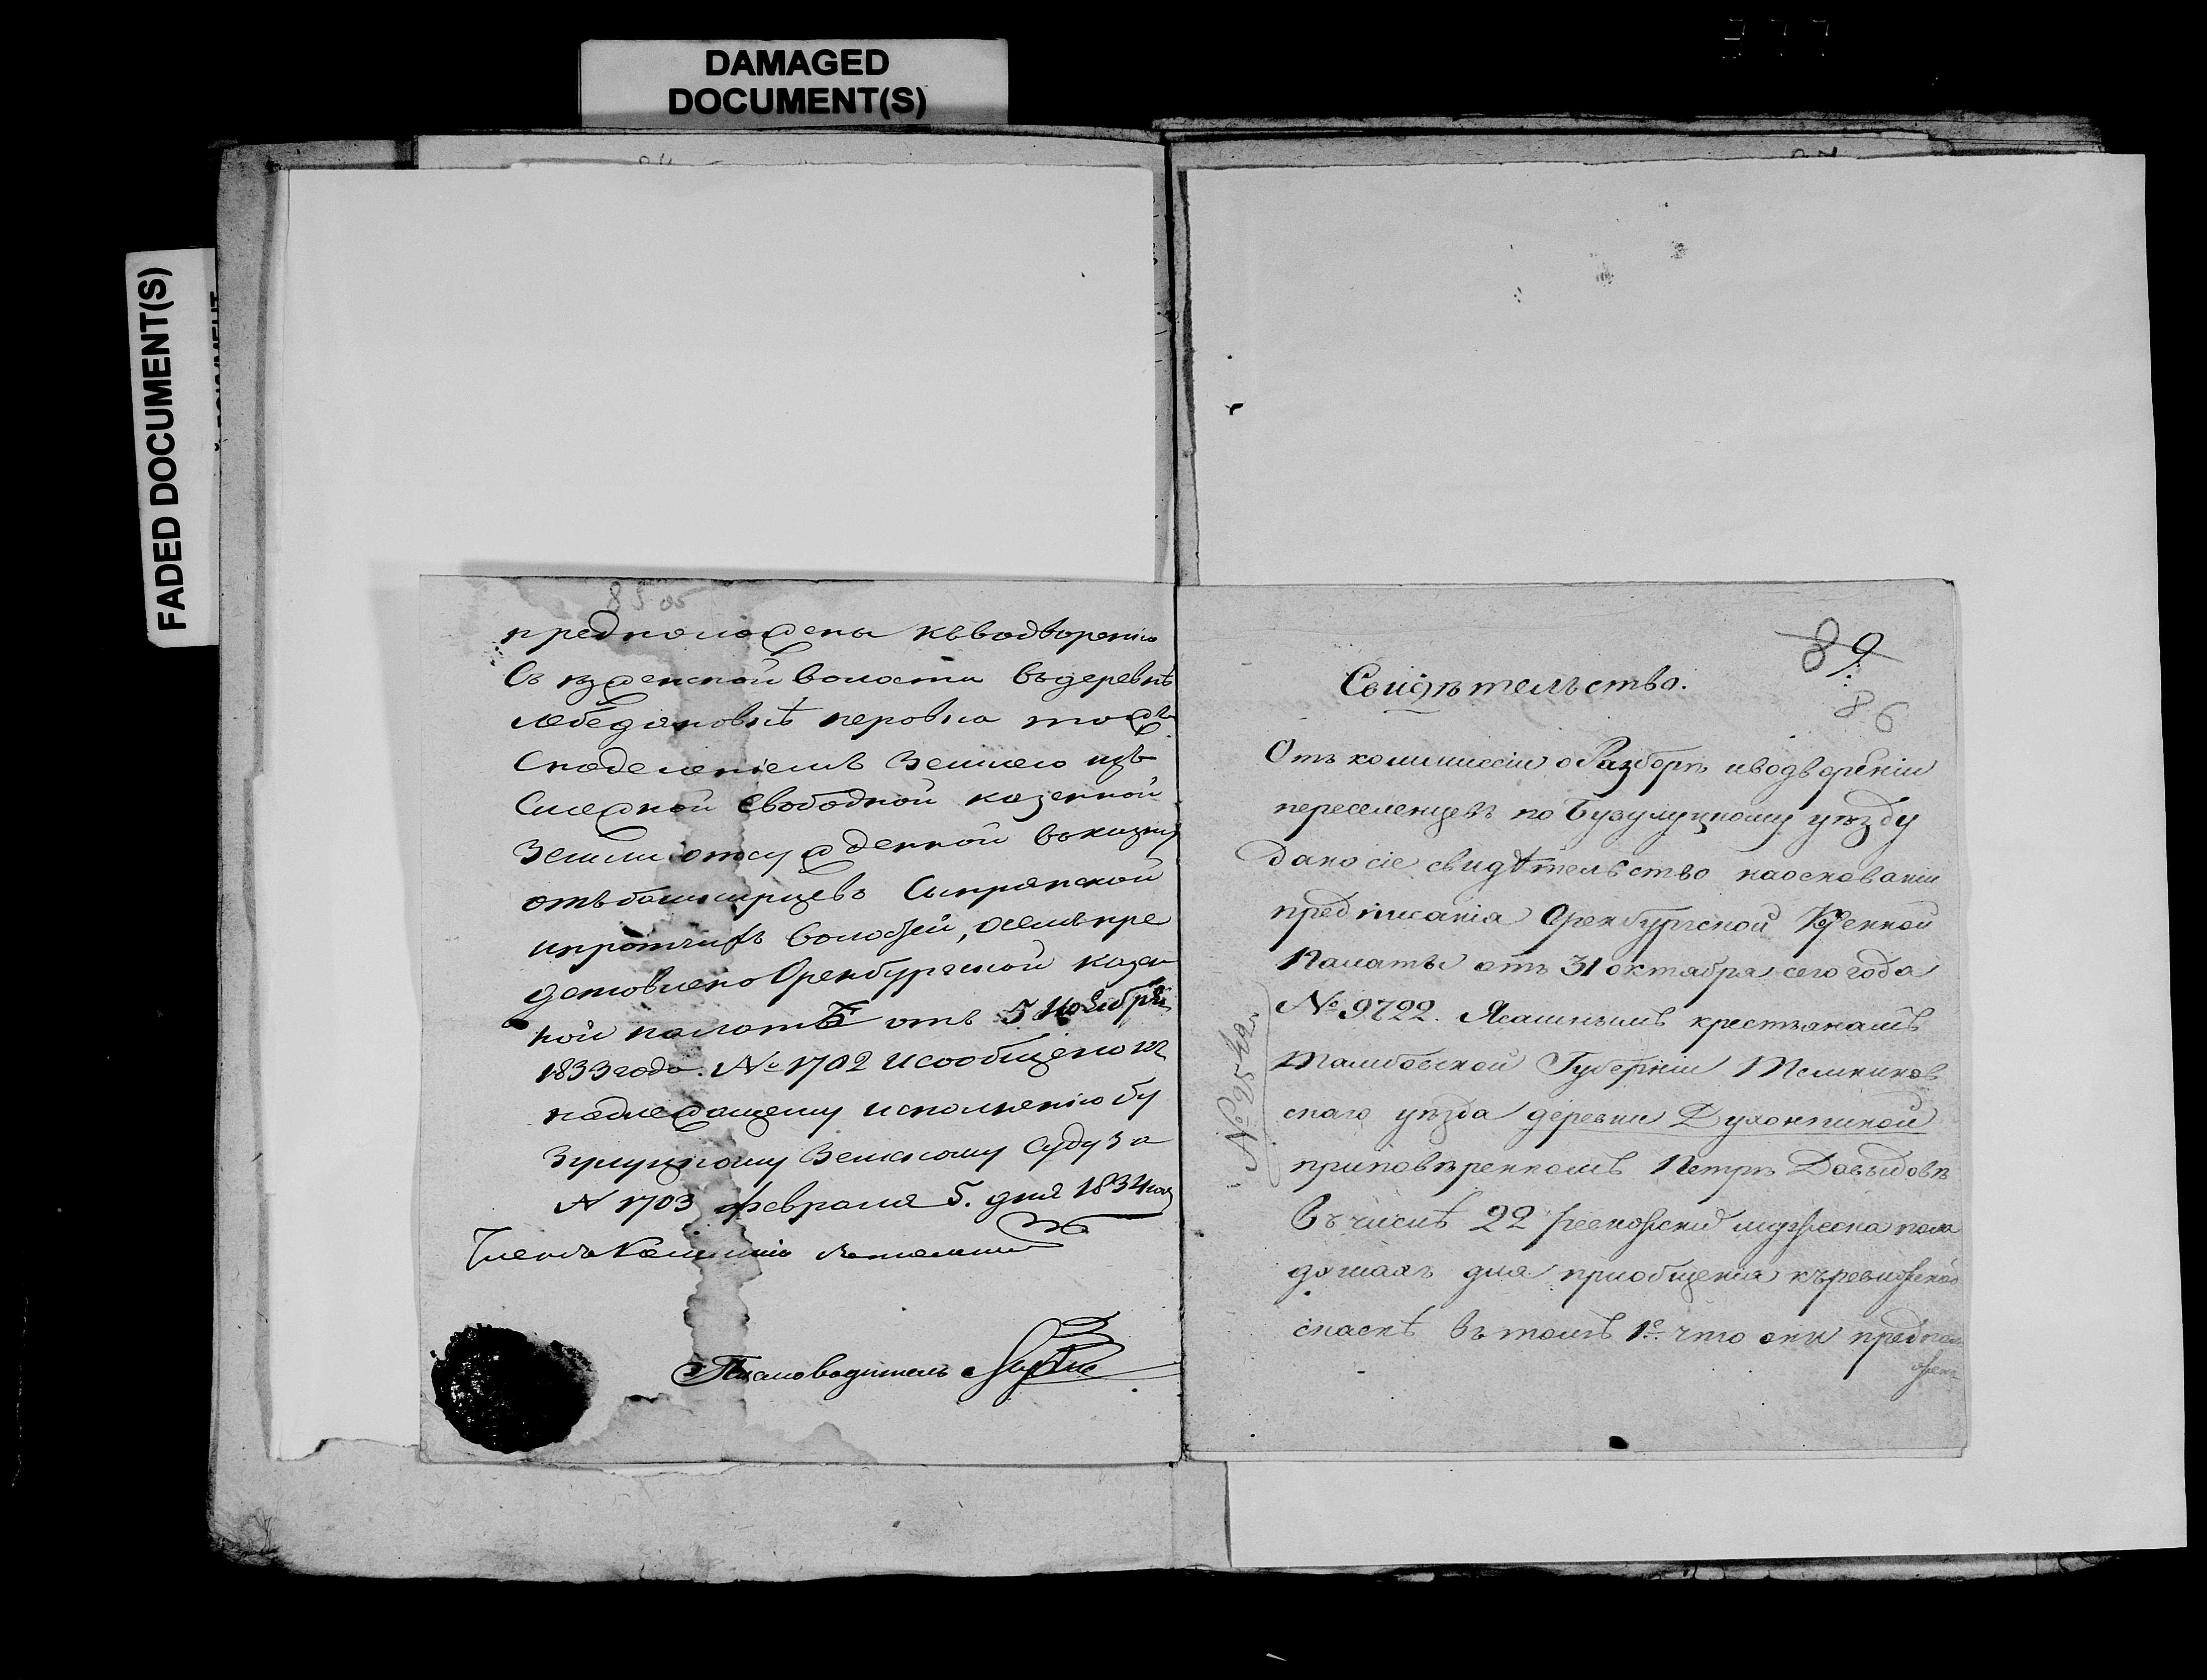 DAMAGED
DOCUMENT(S)
FADED DOCUMENT(S)
85 об
предположены къводворенію
Съезженской волости въдеревнѣ
лебедяновкѣ перовка тожъ
Снаделеніемъ землею изъ
Смежной свободной казенной
земли отсужденной въказну
отъбашкирцевъ Сынрянской
ипротчихъ волостей, осемъпре
дставлено Оренбургской казен
ной палатѣ отъ 5 Ноября
1833 года. № 1702 исообщено къ
надлежащему исполненію бу
зулуцкому Земскому Суду за
№ 1703 февраля 5. дня 1834 года
Членъ Комиссіи
Письмоводитель
89
86
Свидѣтельство.
Отъ коммиссіи о Разборѣ иводвореніи
переселенцевъ по Бузулуцкому уѣзду
дано сіе свидѣтельство наоснованіи
предписанія Оренбургской Казенной
Палаты отъ 31 октября сего года
№ 9722. Ясашнымъ крестьянамъ
Тамбовской Губерніи Темников
скаго уѣзда деревни Духонкиной
приповѣренномъ Петрѣ Давыдовѣ
Въ числѣ 22 ревижски мужеска пола
душахъ для пріобщенія къревижской
скаскѣ Въ томъ 1е что они предпол
жен